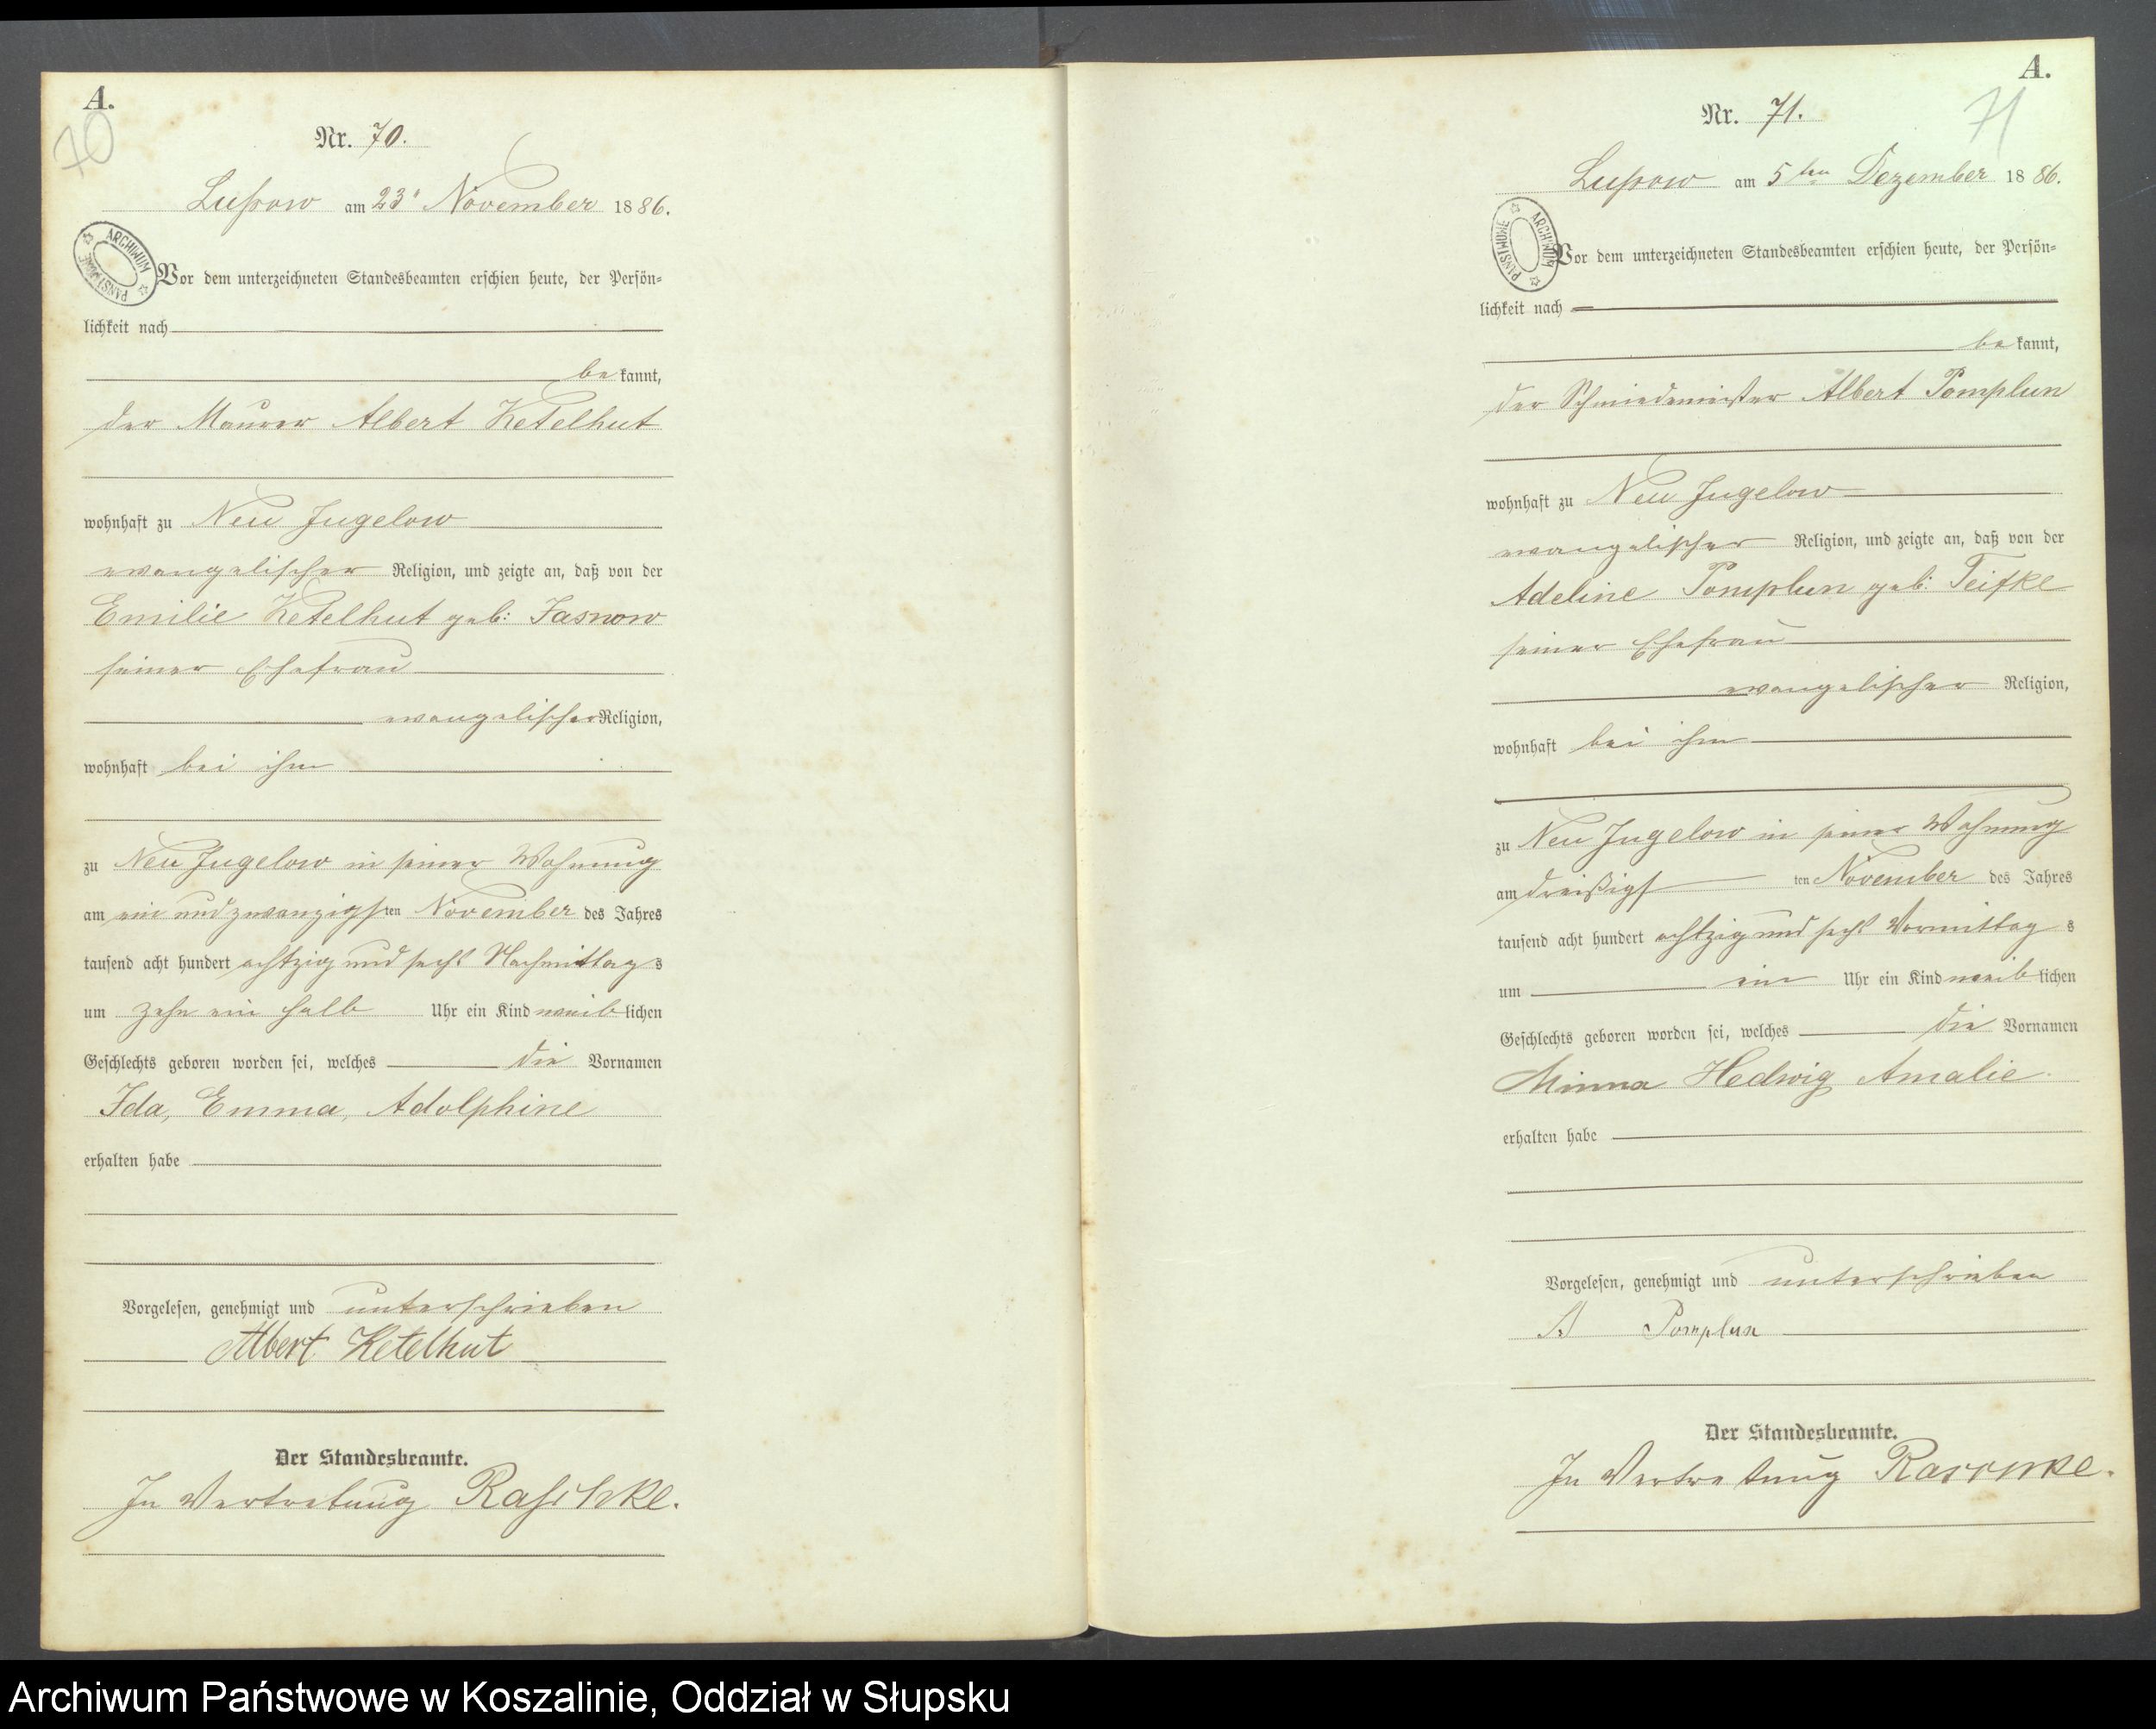 A.
70
Nr. 70.
Lupow am 23t November 1886.
ARCHIWUM PAŃSTWOWE
Vor dem unterzeichneten Standesbeamten erschien heute, der Persön-
lichkeit nach
be kannt,
der Maurer Albert Ketelhut
wohnhaft zu Neu Jugelow
evangelischer Religion, und zeigte an, daß von der
Emilie Ketelhut geb: Jasnow
seiner Ehefrau
evangelischer Religion,
wohnhaft bei ihm
zu Neu Jugelow in seiner Wohnung
am ein und zwanzigsten November des Jahres
tausend acht hundert achtzig und sechs Nachmittags
um zehn ein halb Uhr ein Kind weiblichen
Geschlechts geboren worden sei, welches die Vornamen
Ida, Emma, Adolphine
erhalten habe
Vorgelesen, genehmigt und unterschrieben
Albert Ketelhut
Der Standesbeamte.
In Vertretung Raschke.
A.
71
Nr. 71.
Lupow am 5ten Dezember 1886.
ARCHIWUM PAŃSTWOWE
Vor dem unterzeichneten Standesbeamten erschien heute, der Persön-
lichkeit nach
be kannt,
der Schmiedemeister Albert Pomplun
wohnhaft zu Neu Jugelow
evangelischer Religion, und zeigte an, daß von der
Adeline Pomplun geb: Teifke
seiner Ehefrau
evangelischer Religion,
wohnhaft bei ihm
zu Neu Jugelow in seiner Wohnung
am dreißigsten November des Jahres
tausend acht hundert achtzig und sechs Vormittags
um ein Uhr ein Kind weiblichen
Geschlechts geboren worden sei, welches die Vornamen
Minna Hedwig Amalie
erhalten habe
Vorgelesen, genehmigt und unterschrieben
A Pomplun
Der Standesbeamte.
In Vertretung Raschke.
Archiwum Państwowe w Koszalinie, Oddział w Słupsku